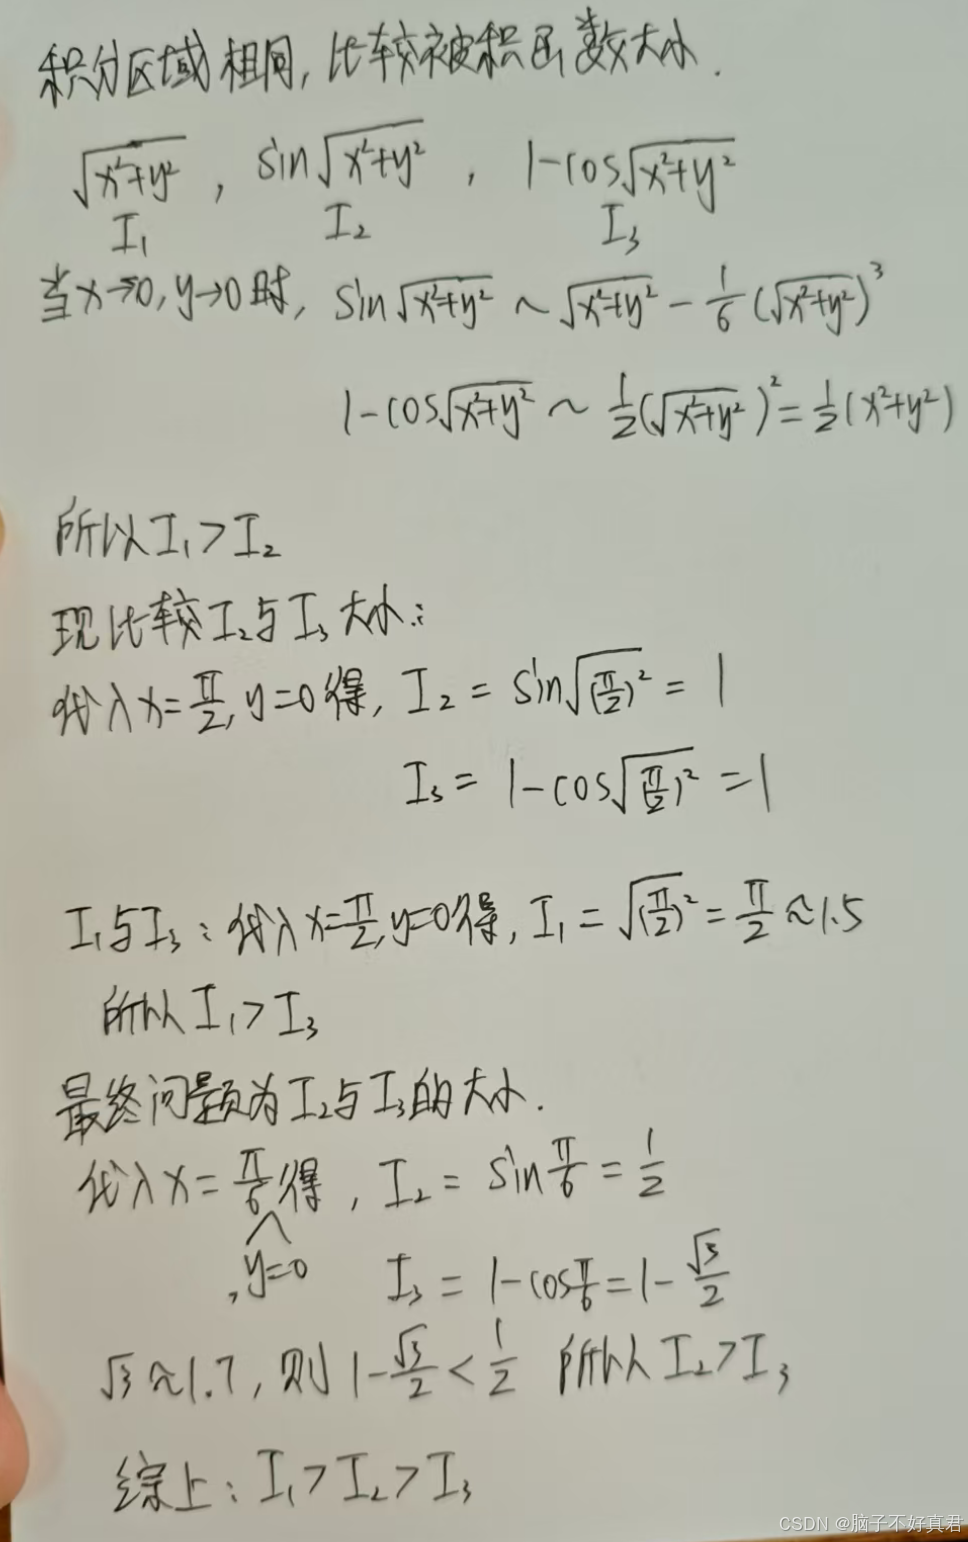 积分区域相同，比较被积函数大小.
√(x²+y²) , sin√(x²+y²) , 1-cos√(x²+y²)
I₁ I₂ I₃
当x→0, y→0时, sin√(x²+y²) ~ √(x²+y²) - 1/6(√(x²+y²))³
1-cos√(x²+y²) ~ 1/2(√(x²+y²))² = 1/2(x²+y²)
所以I₁>I₂
现比较I₂与I₃大小:
代入x=π/2, y=0得, I₂ = sin√(π/2)² = 1
I₃ = 1-cos√(π/2)² = 1
I₁与I₃: 代入x=π/2, y=0得, I₁ = √(π/2)² = π/2 ≈ 1.5
所以I₁>I₃
最终问题为I₂与I₃的大小.
代入x=π/6得, I₂ = sinπ/6 = 1/2
, y=0 I₃ = 1-cosπ/6 = 1-√3/2
√3≈1.7, 则1-√3/2<1/2 所以I₂>I₃
综上: I₁>I₂>I₃
CSDN @脑子不好真君